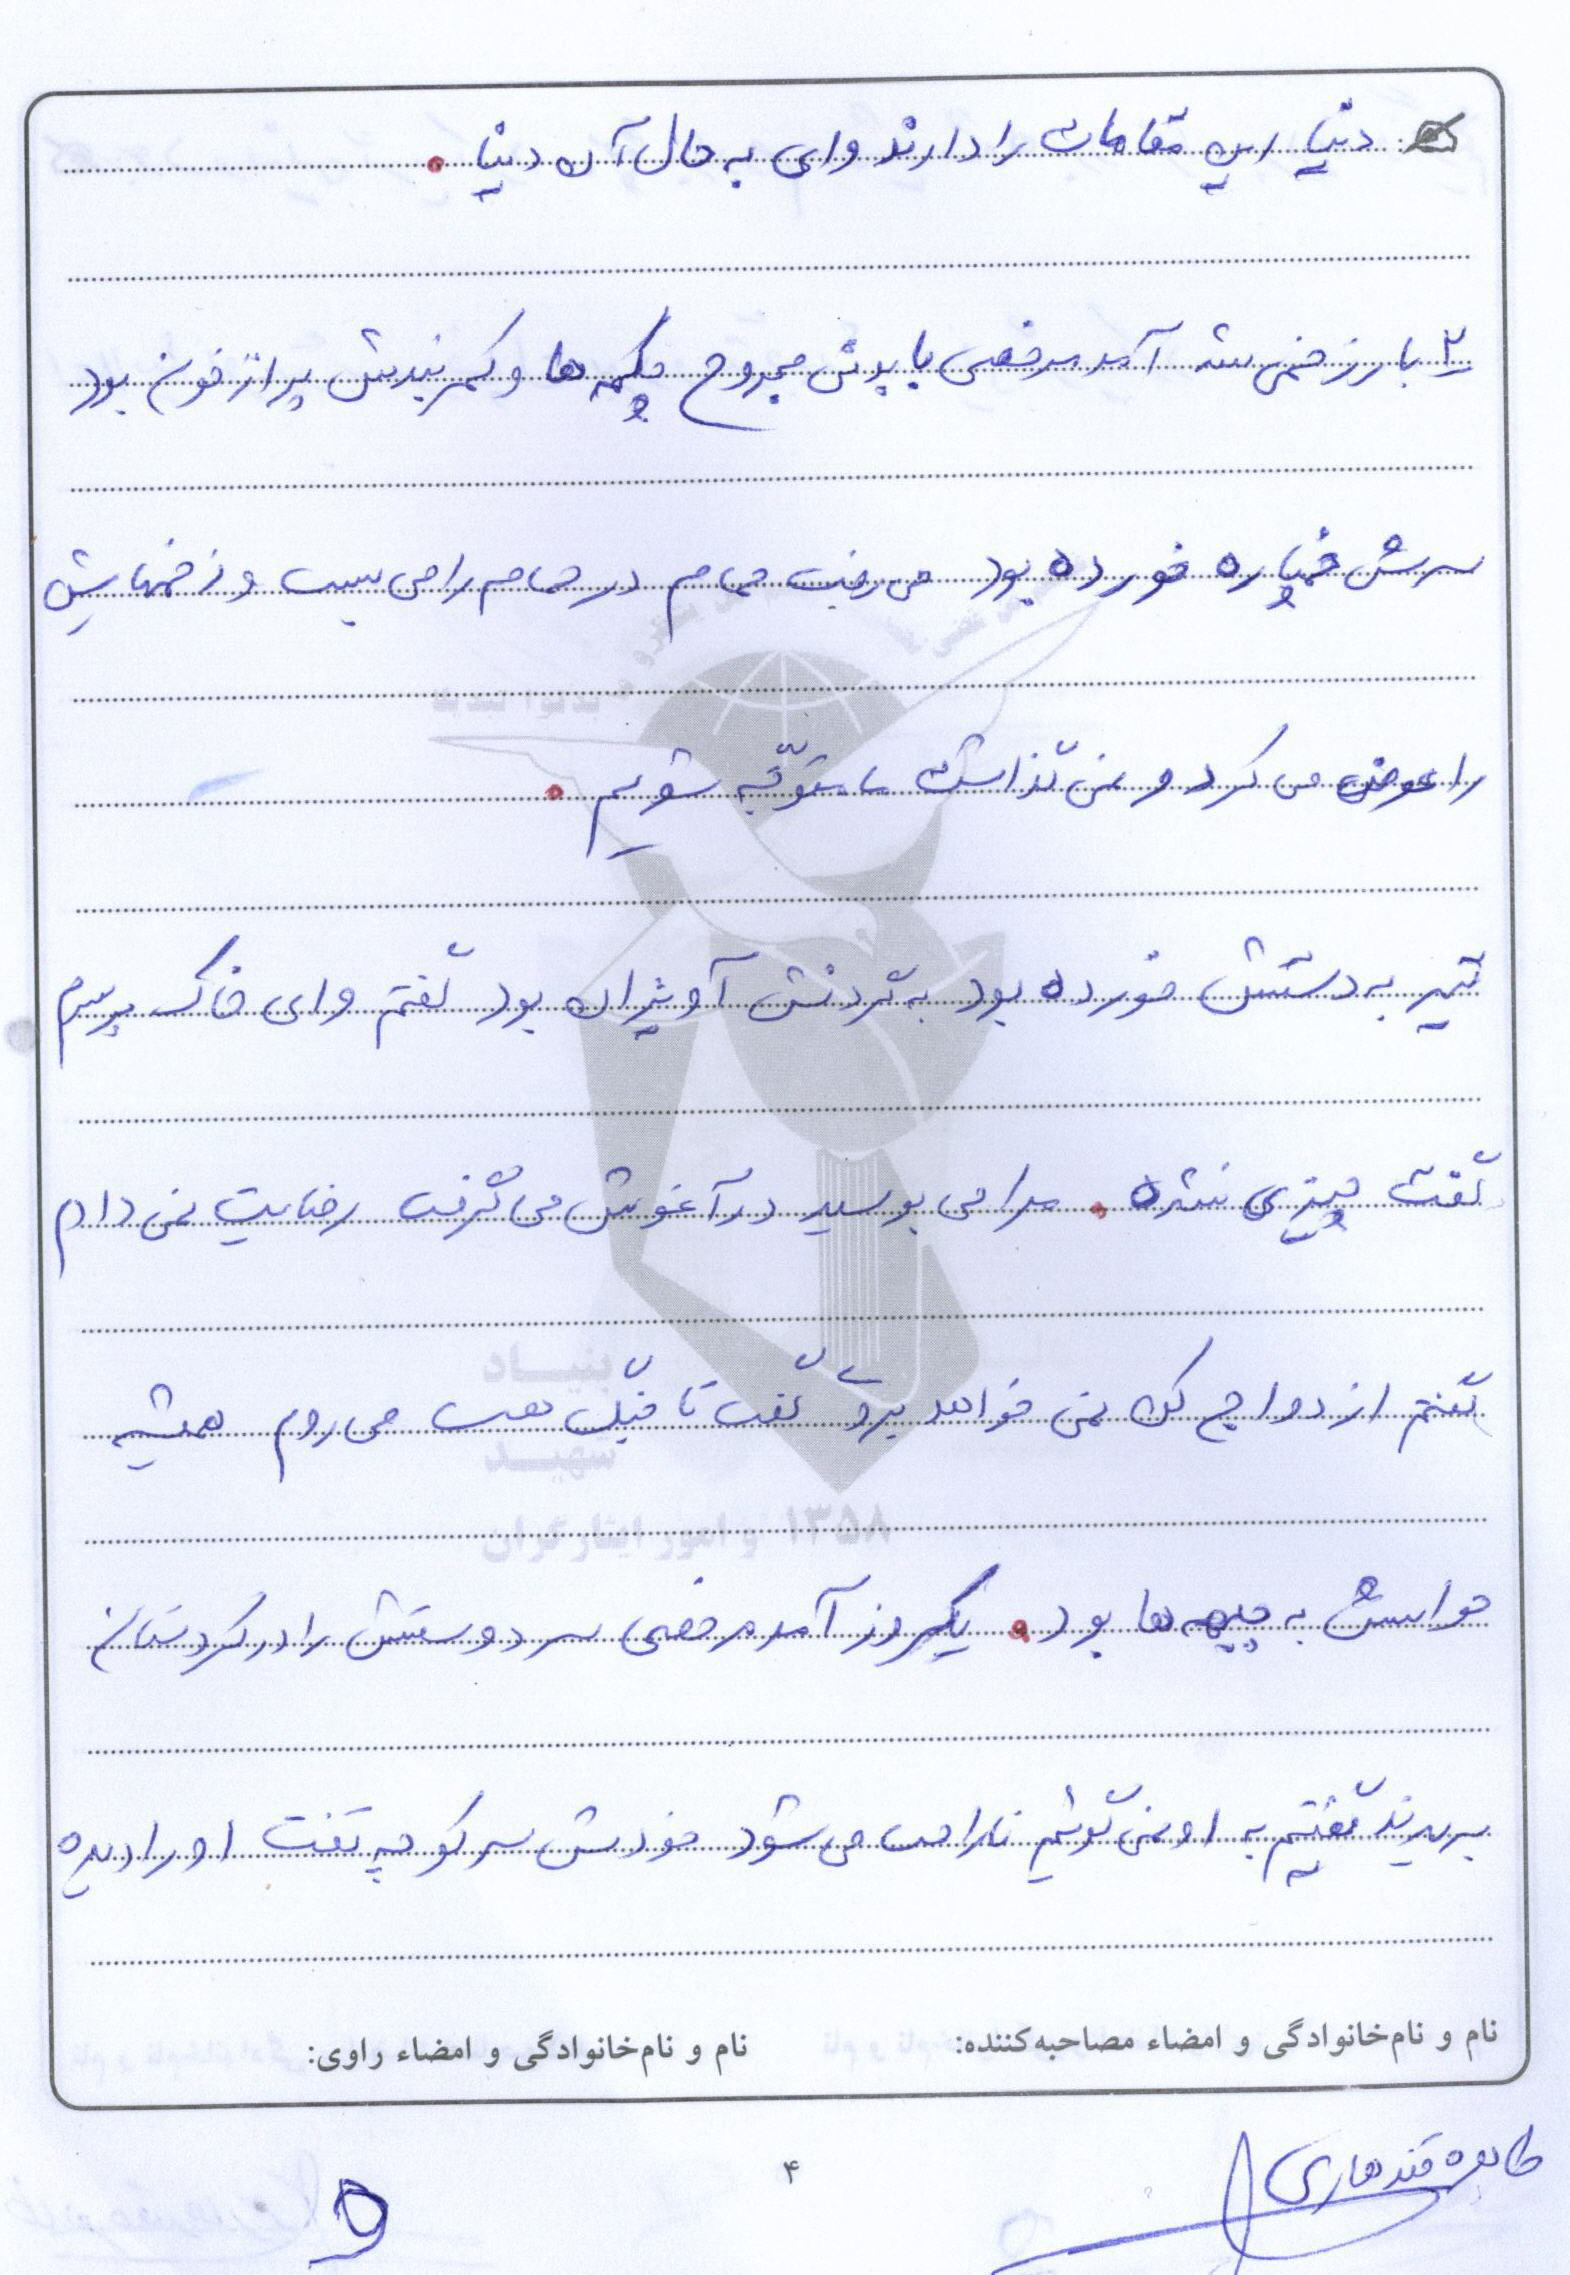 دنیا این مقامات را دارند وای به حال آن دنیا.
۲ بار زخمی شد آمد مرخصی با پوتین مجروح چکمه ها و کمربندش پر از خون بود
سرش خمپاره خورده بود می رفت حمام در حمام را می بست و زخمهایش
را عوض می کرد و نمی گذاشت ما متوجّه شویم.
تیر به دستش خورده بود به گردنش آویزان بود گفتم وای خاک بر سرم
گفت چیزی نشده. مرا می بوسید در آغوش می گرفت رضایت نمی دادم
گفتم ازدواج کن نمی خواهد بروی گفت تا جنگ هست می روم همیشه
حواسش به جبهه ها بود. یکروز آمد مرخصی سر دوستش را در کردستان
بریدند گفتیم به او نمی گوئیم ناراحت می شود خودش سر کوچه گفت او را دیده
نام و نام‌خانوادگی و امضاء مصاحبه‌کننده:
نام و نام‌خانوادگی و امضاء راوی:
طاهره قندهاری
۴
بنیـــاد
شهیـــد
و امور ایثارگران
۱۳۵۸